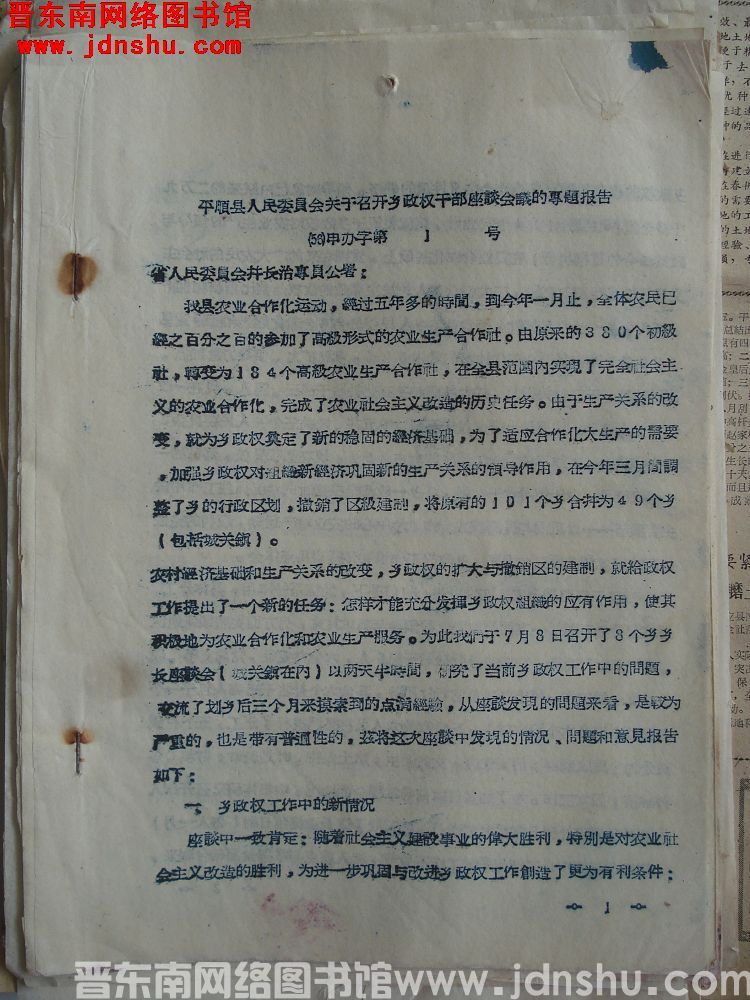 晋东南网络图书馆
www.jdnshu.com
平順县人民委員会关于召开乡政权干部座談会議的専題报告
(56)申办字第 1 号
省人民委員会幷长治専員公署：
我县农业合作化运动，經过五年多的時間，到今年一月止，全体农民已
經之百分之百的参加了高級形式的农业生产合作社。由原来的380个初級
社，轉变为184个高級农业生产合作社，在全县范圍內实現了完全社会主
义的农业合作化，完成了农业社会主义改造的历史任务。由于生产关系的改
变，就为乡政权奠定了新的稳固的經济基础，为了适应合作化大生产的需要
，加强乡政权对組織新經济巩固新的生产关系的領导作用，在今年三月間調
整了乡的行政区划，撤銷了区級建制，将原有的101个乡合幷为49个乡
（包括城关鎮）。
农村經济基础和生产关系的改变，乡政权的扩大与撤銷区的建制，就給政权
工作提出了一个新的任务：怎样才能充分发揮乡政权組織的应有作用，使其
积极地为农业合作化和农业生产服务。为此我們于7月8日召开了8个乡乡
长座談会（城关鎮在內）以两天半時間，研究了当前乡政权工作中的問題，
交流了划乡后三个月来摸索到的点滴經驗，从座談发現的問題来看，是較为
严重的，也是带有普遍性的，茲将这次座談中发現的情况、問題和意見报告
如下：
一、乡政权工作中的新情况
座談中一致肯定：随着社会主义建設事业的偉大胜利，特别是对农业社
会主义改造的胜利，为进一步巩固与改进乡政权工作創造了更为有利条件：
1
晋东南网络图书馆www.jdnshu.com